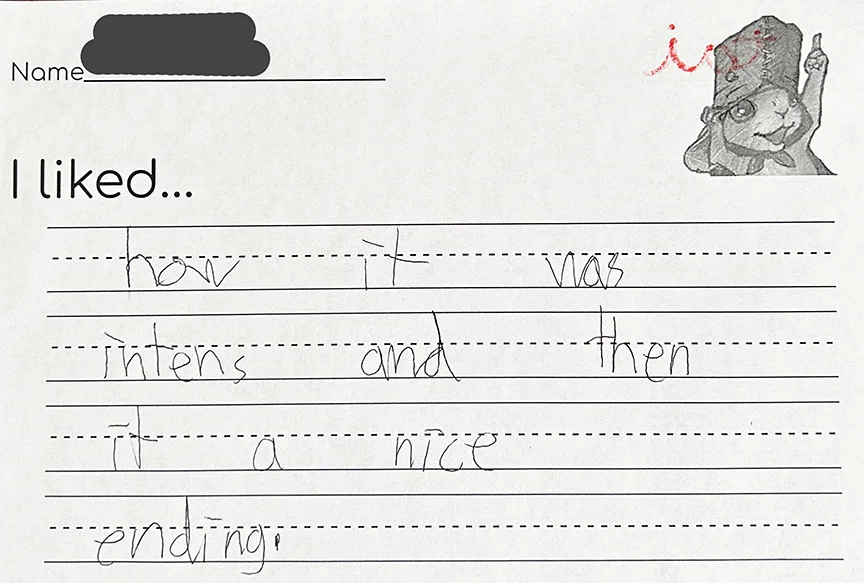 Name
I liked...
how it was
intens and then
it a nice
ending.